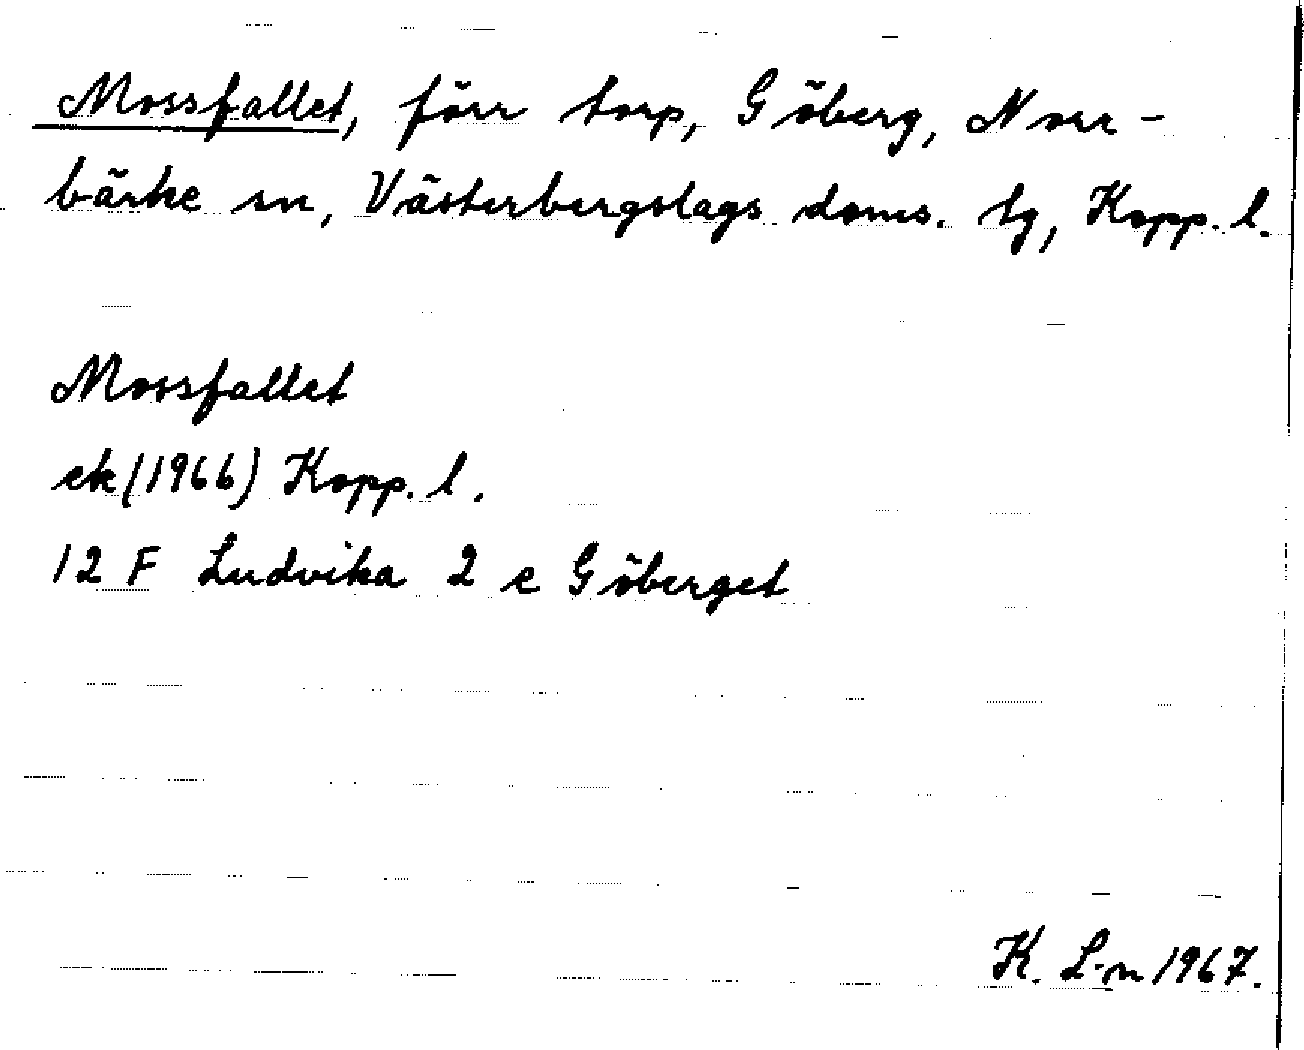 Mossfallet, förr torp, Göberg, Norr-
bärke sn, Västerbergslags doms. tg, Kopp. l.
Mossfallet
ek (1966) Kopp. l.
12 F Ludvika 2 e Göberget
K. L-n 1967.